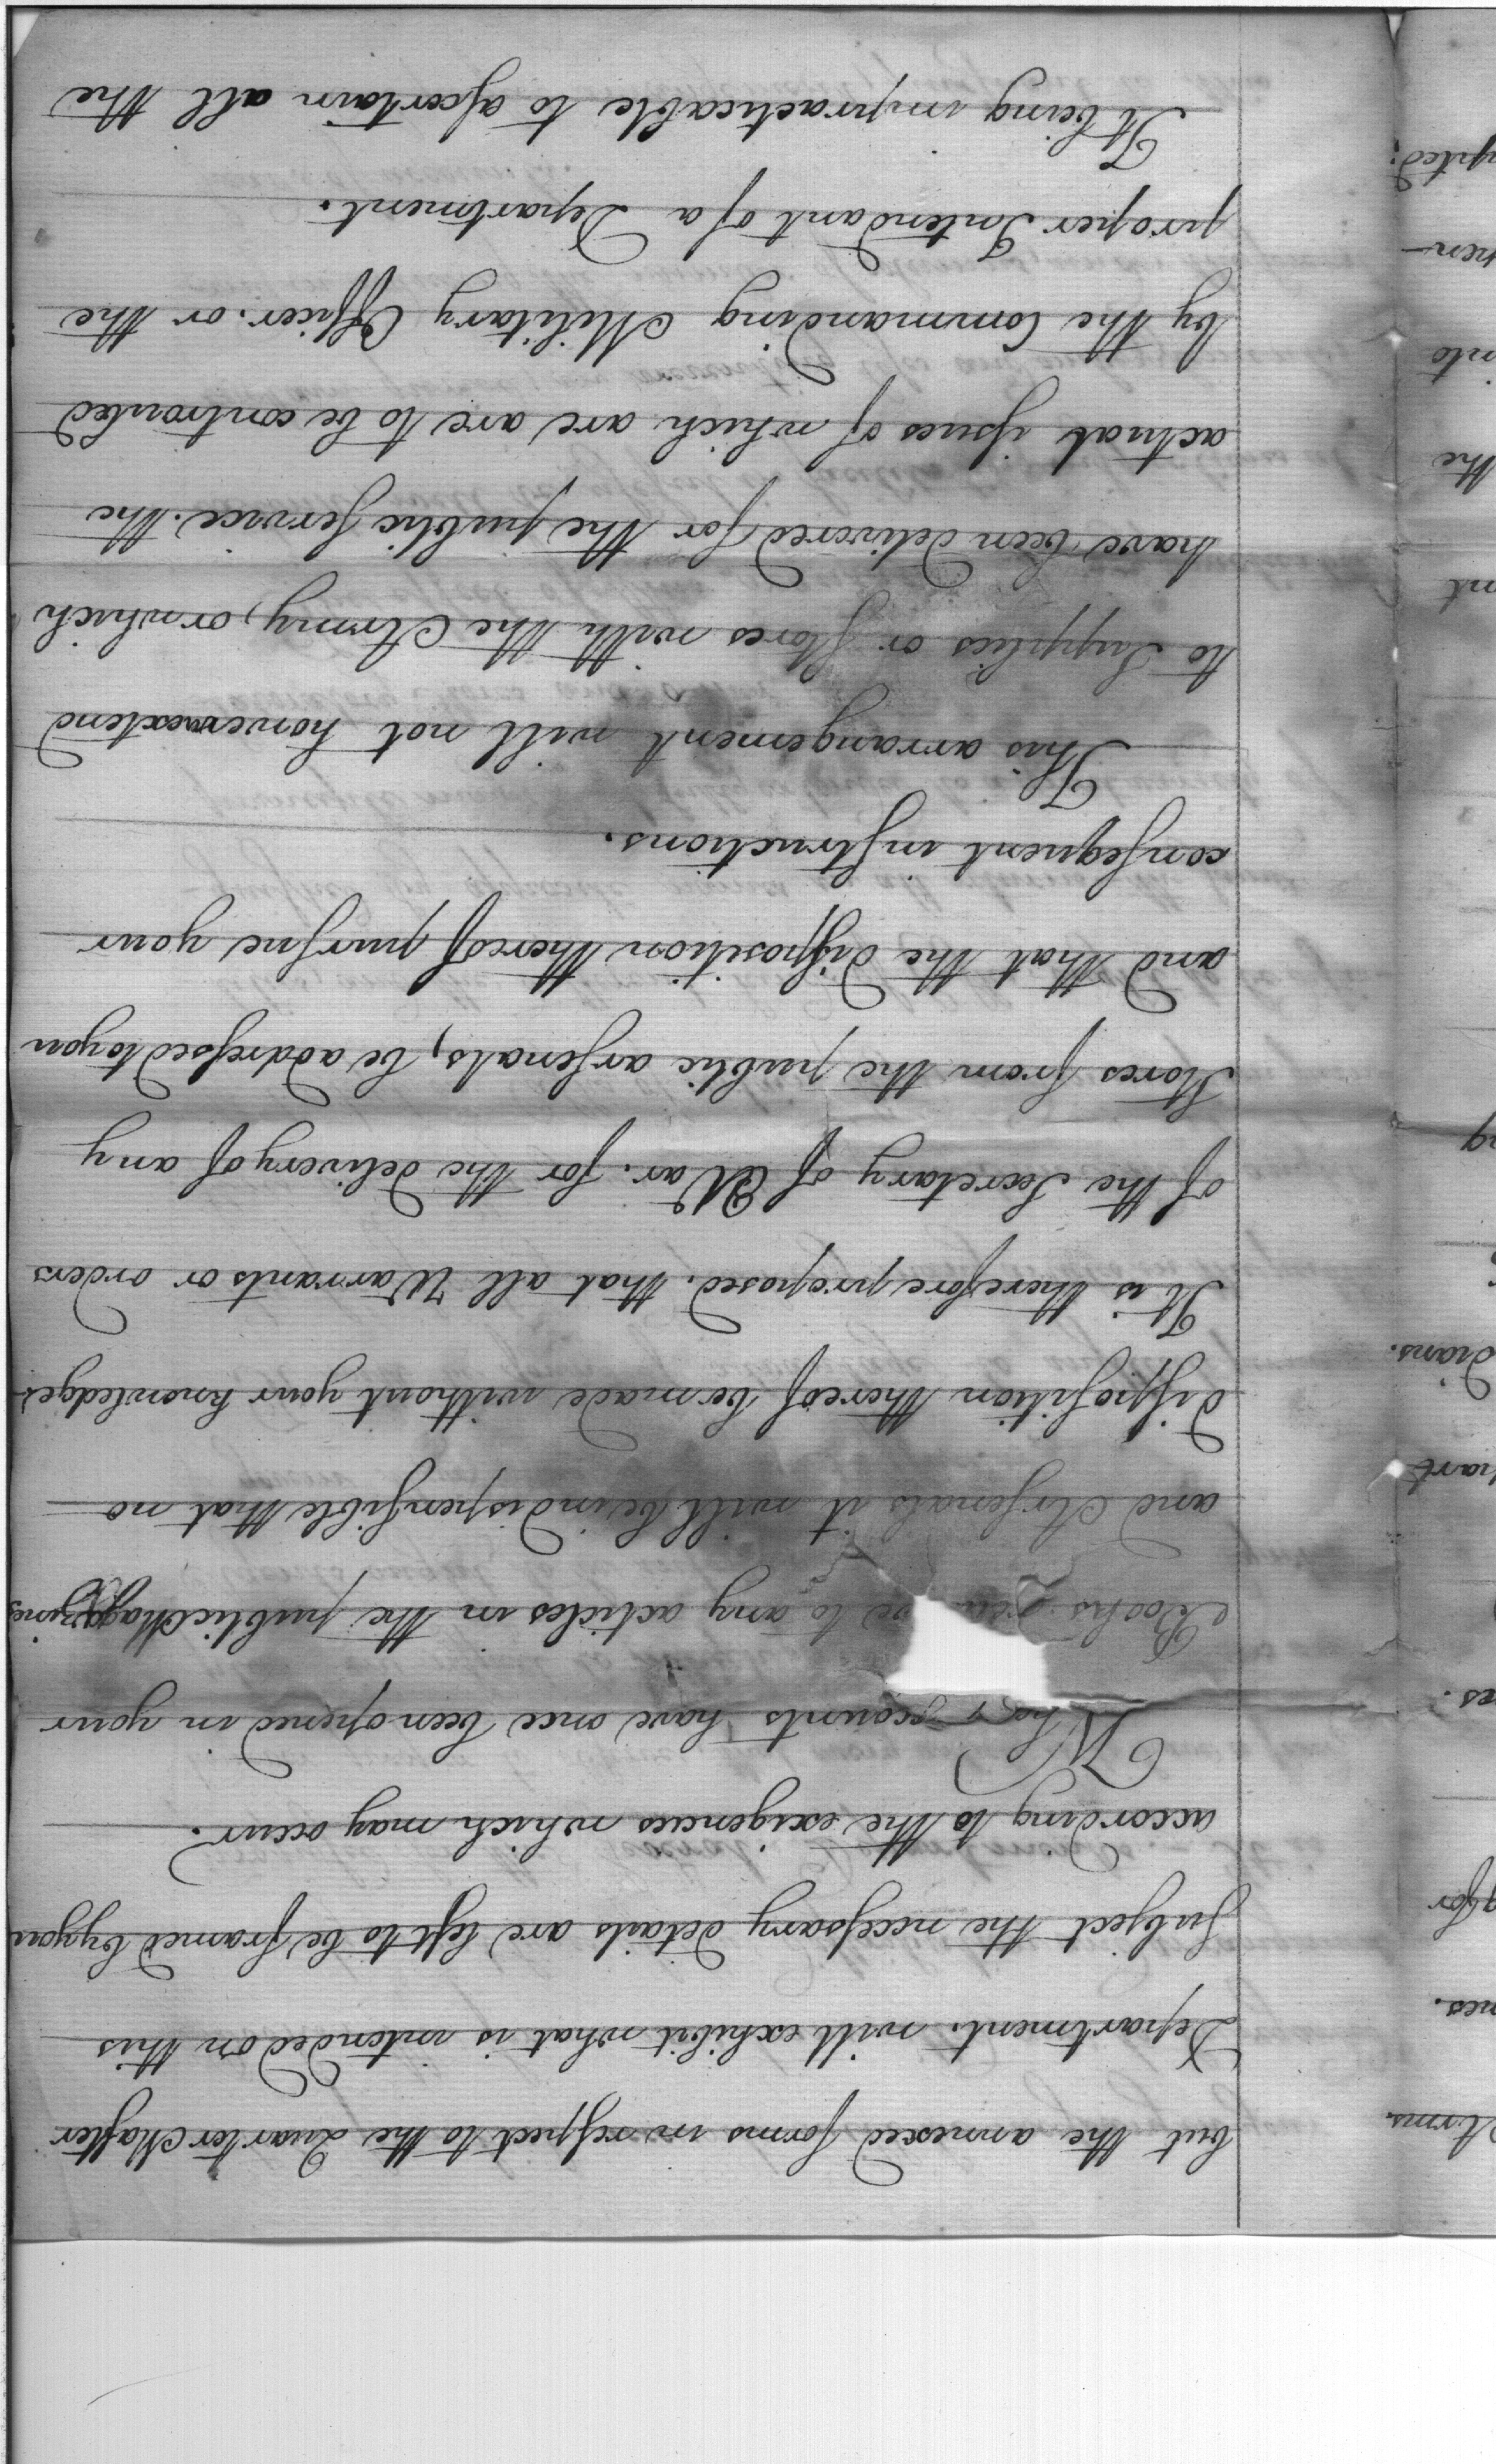 but the annexed forms in respect to the Quarter Master
Department. will exhibit what is intended on this
Subject the necessary details are left to be framed by you
according to the exigencies which may occur.
When accounts have once been opened in your
Books to any articles in the public Magazines
and Arsenals it will be indispensible that no
disposition thereof be made without your knowledge
It is therefore proposed. that all Warrants or orders
of the Secretary of War. for the delivery of any
Stores from the public arsenals, be addressed to you
and that the disposition thereof pursue your
consequent instructions.
This arrangement will not however extend
to Supplies or Stores with the Army, or which
have been delivered for the public service. the
actual issues of which are to be controuled
by the Commanding Military Officer. or the
proper Intendant of a Department.
It being impracticable to ascertain all the
Arms
nes.
for
es.
part
dians.
ng
nt
the
nto
men